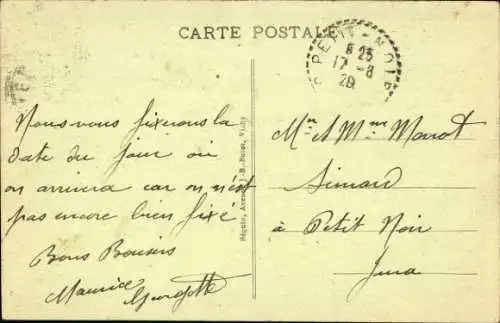 CARTE POSTALE
PETIT-NOIR
8 25
17-8
20
Nous vous fixerons la
date du jour où
on arrivera car on n'est
pas encore bien fixé
Bons Baisers
Maurice Georgette
Mr et Mme Marot
Simard
à Petit Noir
Jura
Béguin, Avenue J.-B.-Burot, Vichy